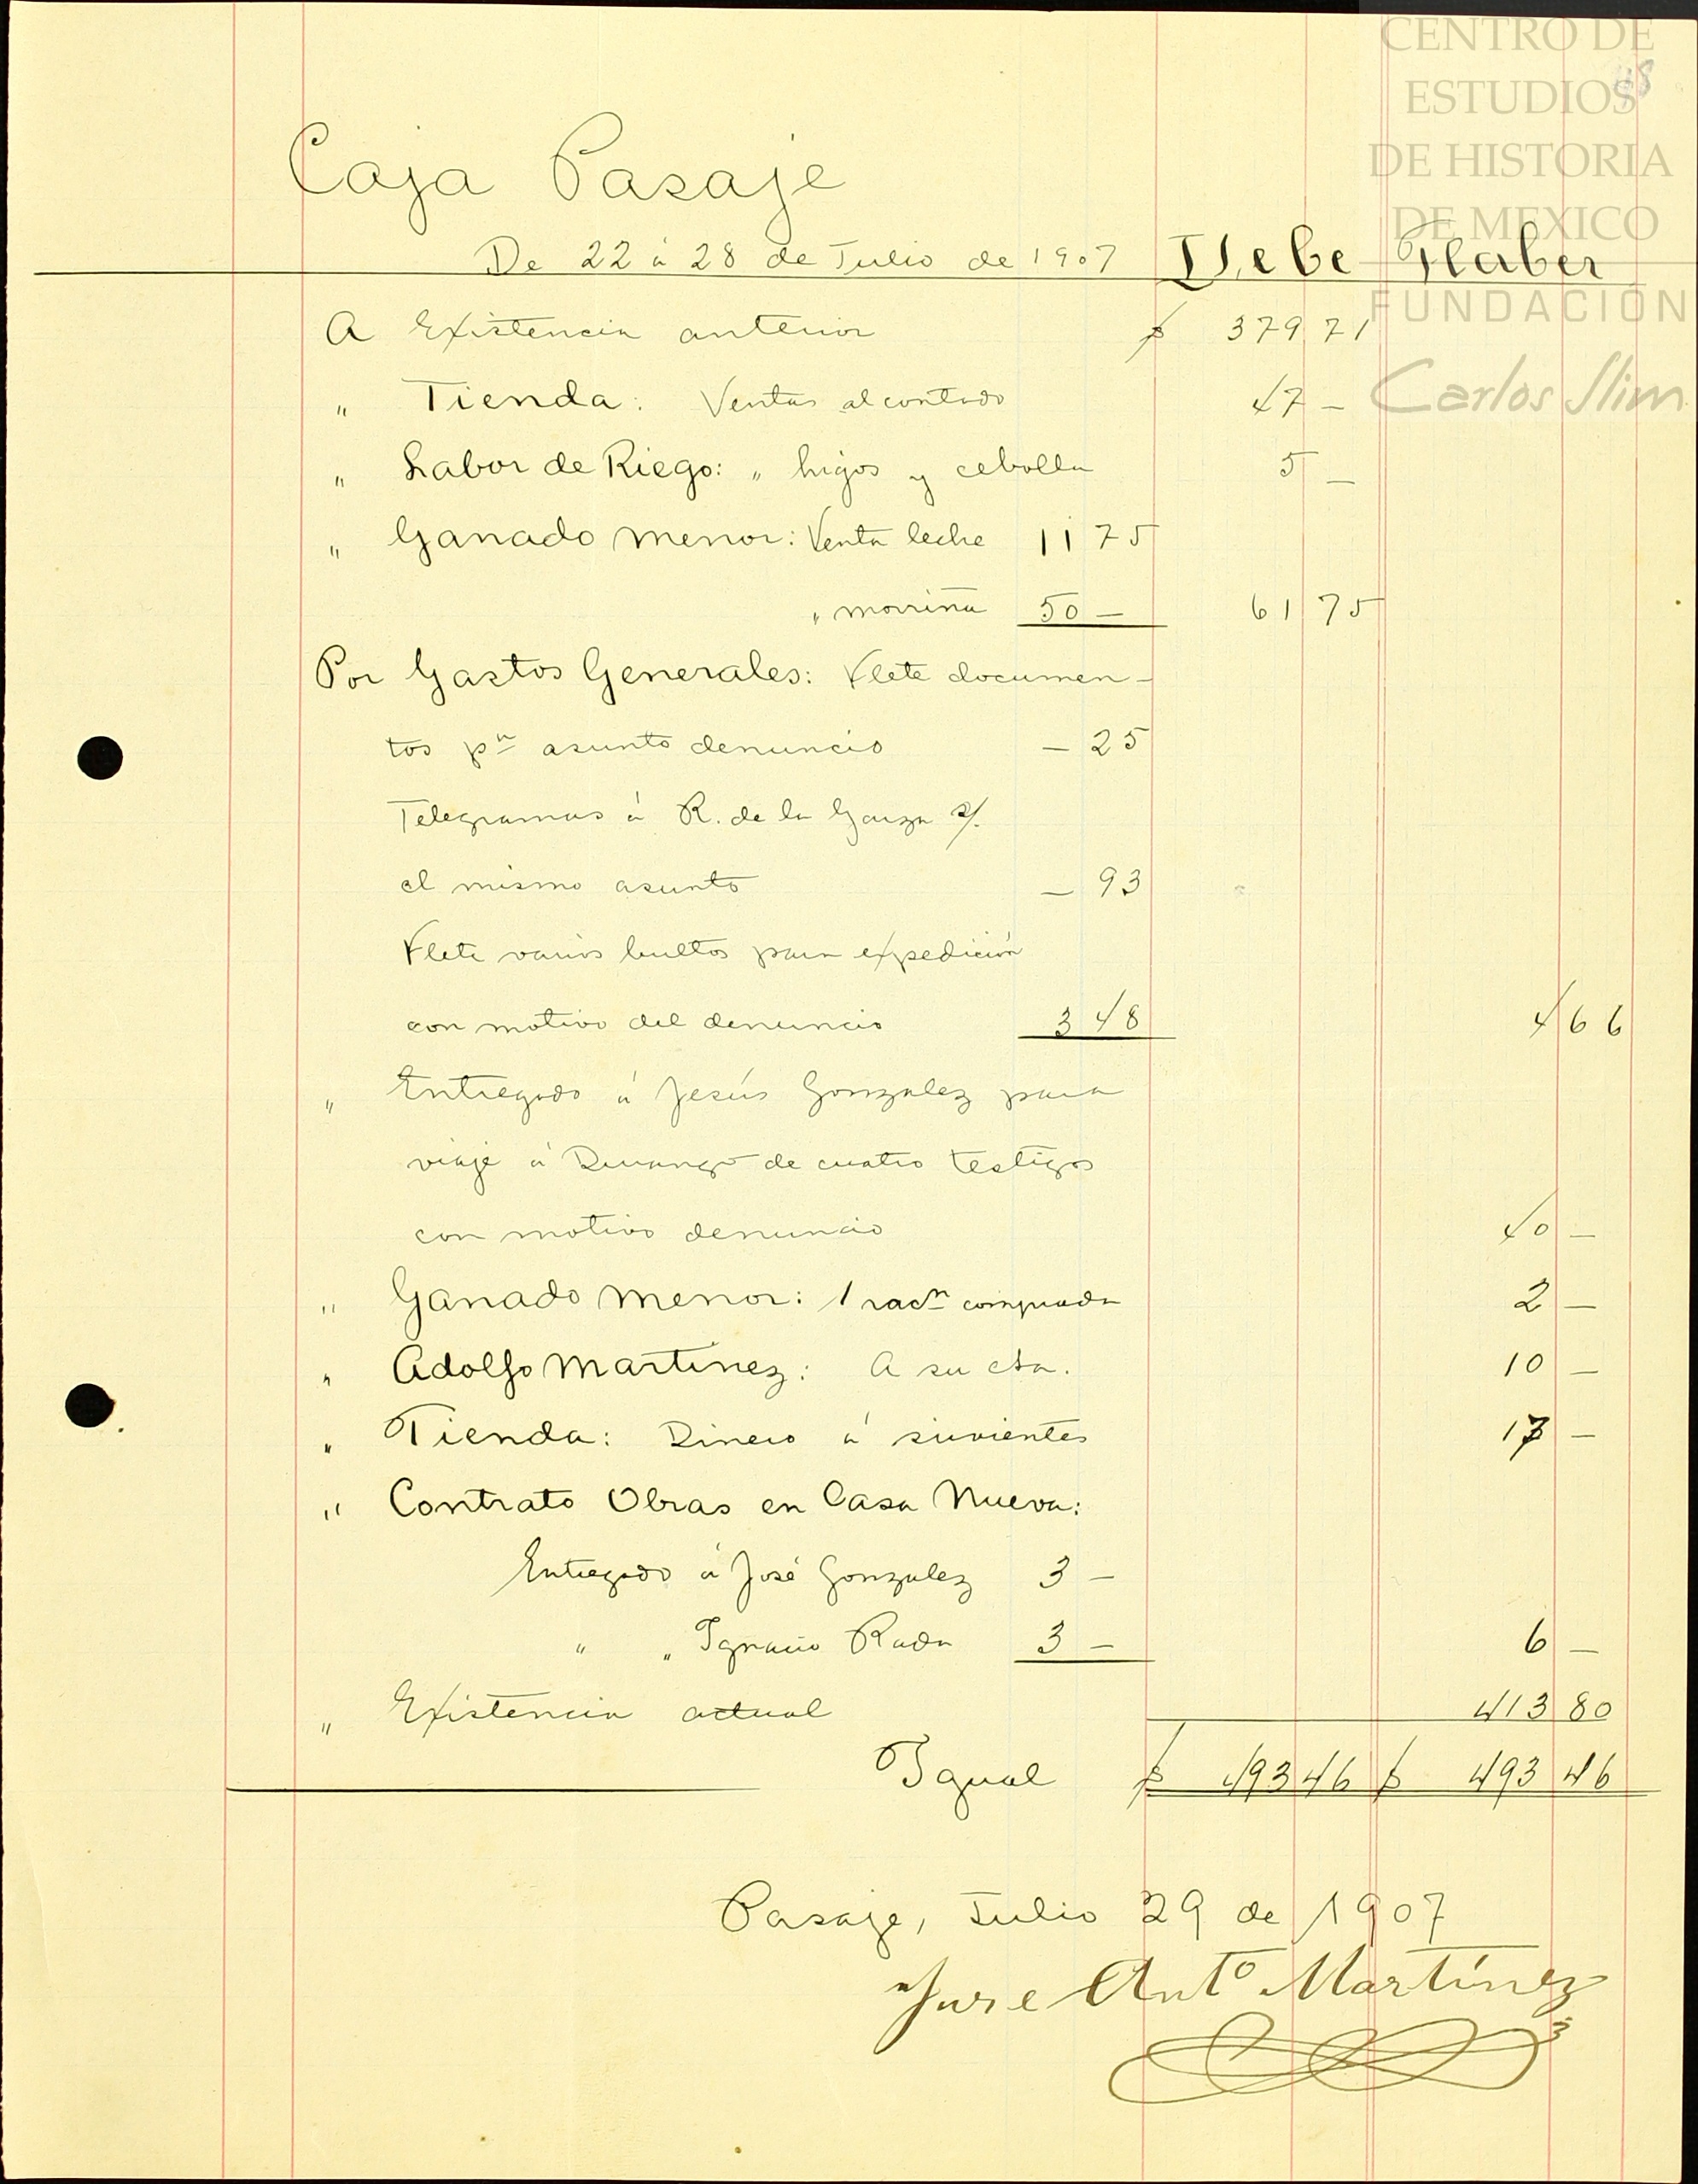 CENTRO DE
ESTUDIOS
DE HISTORIA
DE MEXICO
FUNDACIÓN
Carlos Slim
Caja Pasaje
De 22 á 28 de Julio de 1907 Debe Haber
A Existencia anterior $ 379 71
" Tienda: Ventas al contado 47 —
" Labor de Riego: " higos y cebolla 5 —
" Ganado menor: Venta leche 11 75
" morriña 50 — 61 75
Por Gastos Generales: Flete documen-
tos pª asunto denuncio — 25
Telegramas á R. de la Garza s/.
el mismo asunto — 93
Flete varios bultos para expedición
con motivo del denuncio 3 48 4 66
" Entregado á Jesús Gonzalez para
viaje á Durango de cuatro testigos
con motivo denuncio 40 —
" Ganado menor: 1 comprada 2 —
" Adolfo Martinez: A su cta. 10 —
" Tienda: Dinero á sirvientes 17 —
" Contrato Obras en Casa Nueva:
Entregado á José Gonzalez 3 —
" " Ignacio Rada 3 — 6 —
" Existencia actual 413 80
Igual $ 493 46 $ 493 46
Pasaje, Julio 29 de 1907
Jose Antº Martínez